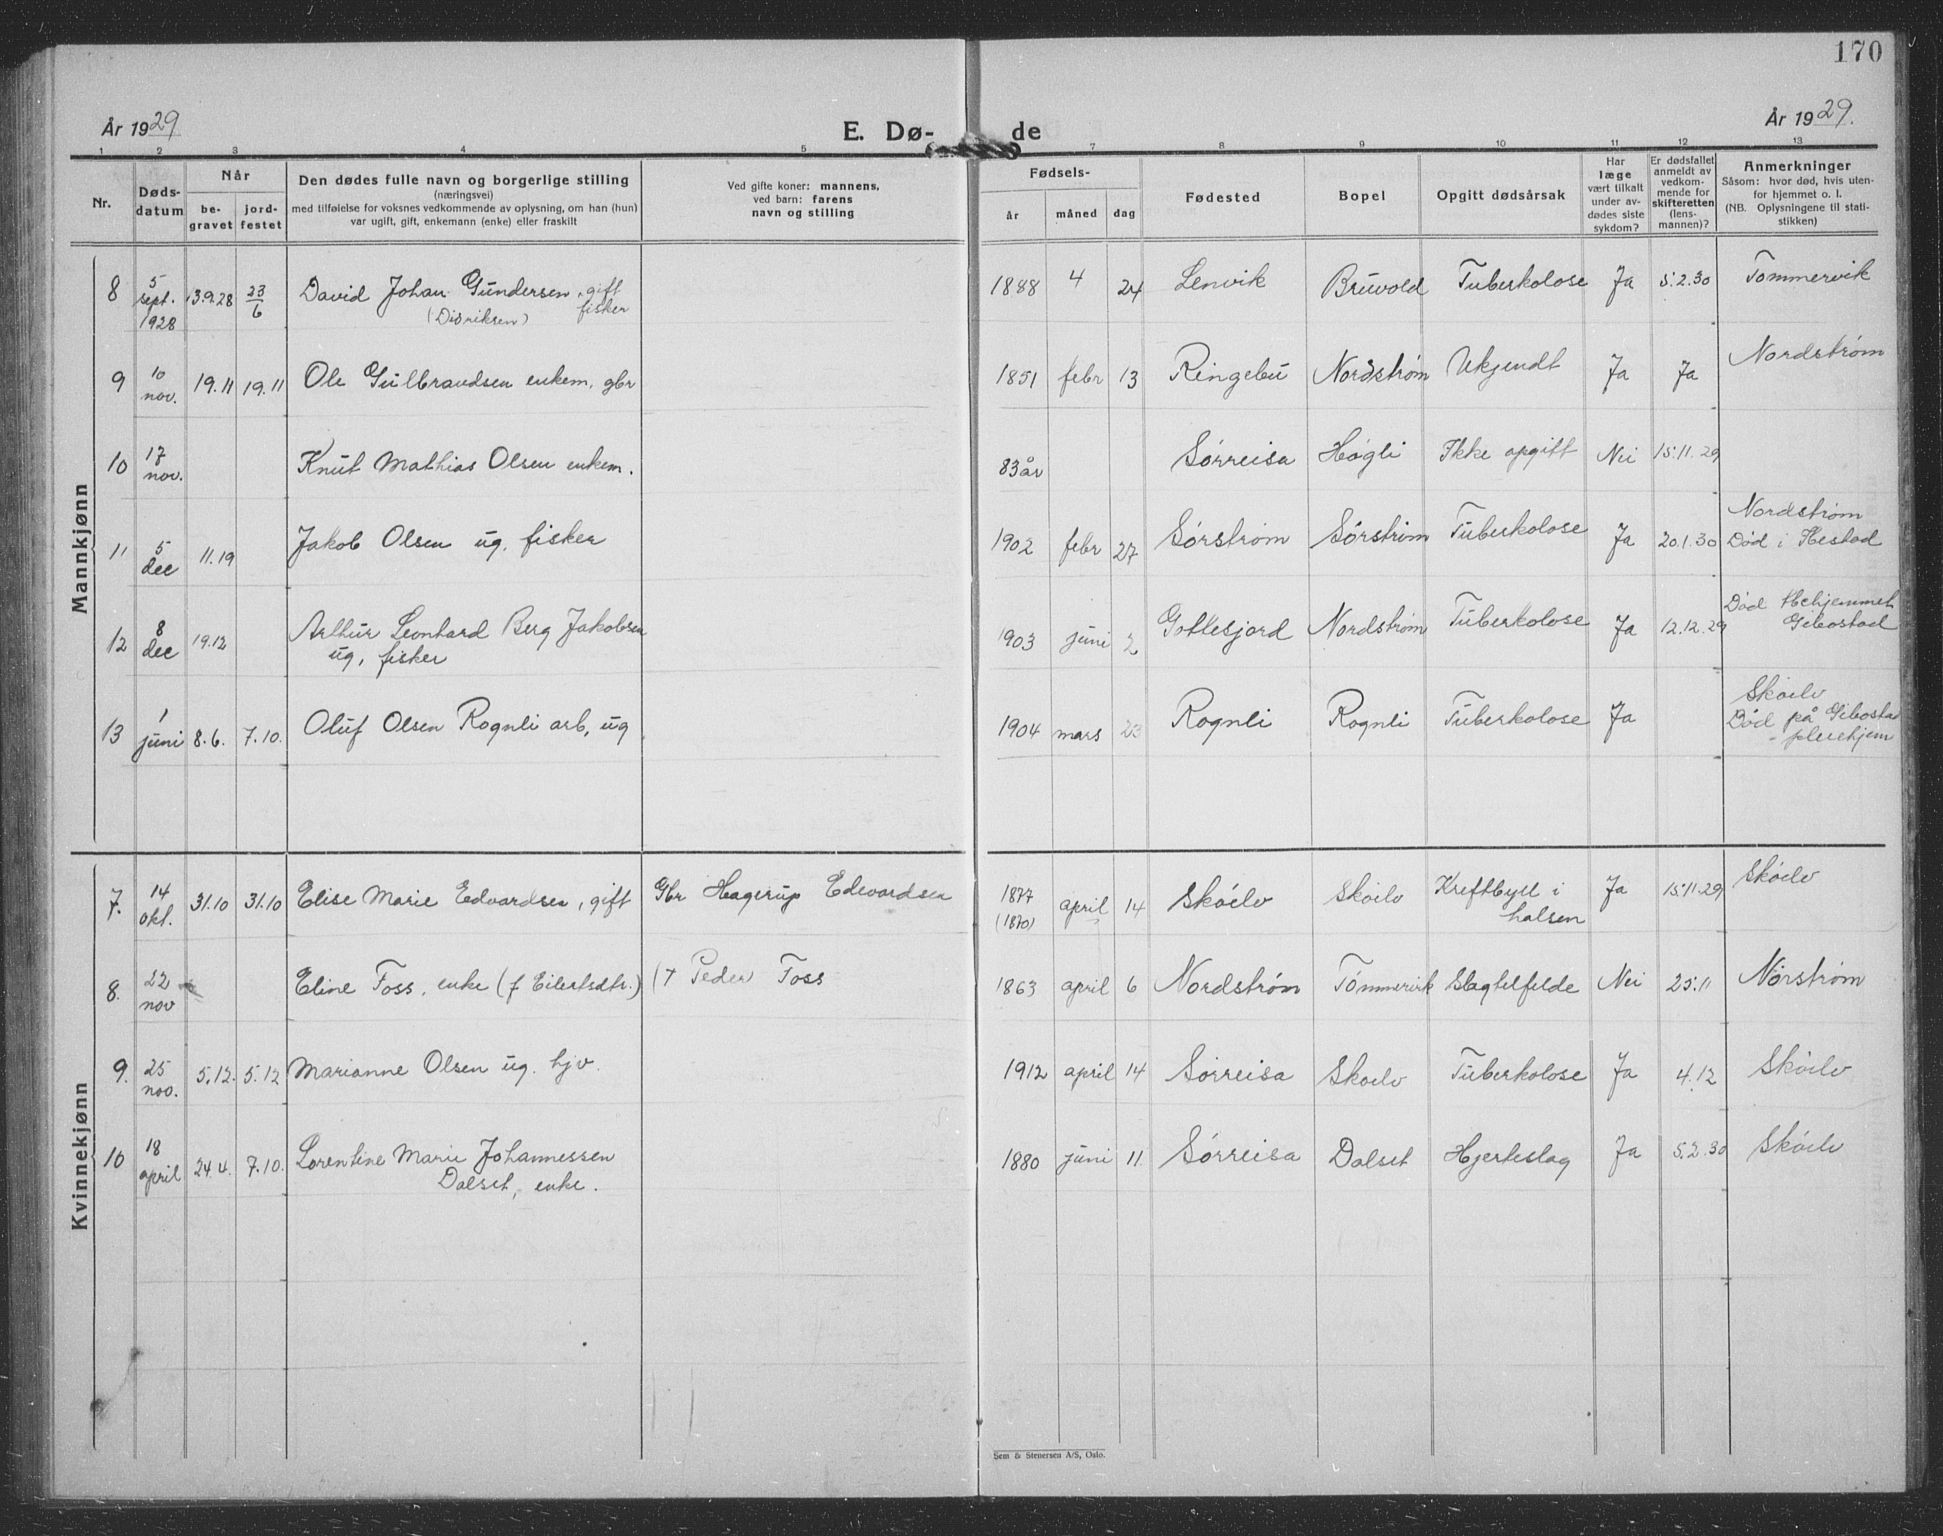 170
År 1929
E. Dø-
de
År 1929.
1 2 3 4 5 7 8 9 10 11 12 13
Nr.
Døds-
datum
Når
be-
gravet
jord-
festet
Den dødes fulle navn og borgerlige stilling
(næringsvei)
med tilføielse for voksnes vedkommende av oplysning, om han (hun)
var ugift, gift, enkemann (enke) eller fraskilt
Ved gifte koner: mannens,
ved barn: farens
navn og stilling
Fødsels-
år måned dag
Fødested
Bopel
Opgitt dødsårsak
Har
læge
vært tilkalt
under av-
dødes siste
sykdom?
Er dødsfallet
anmeldt av
vedkom-
mende for
skifteretten
(lens-
mannen)?
Anmerkninger
Såsom: hvor død, hvis uten-
for hjemmet o. l.
(NB. Oplysningene til stati-
stikken)
Mannkjønn
8 5 sept. 1928 13.9.28 23/6 David Johan Gundersen, gift fisker
(Didriksen)
1888 4 24 Lenvik Bruvold Tuberkolose Ja 5.2.30 Tømmervik
9 10 nov. 19.11 19.11 Ole Gulbrandsen enkem, gbr
1851 febr 13 Ringebu Nordstrøm Ukjendt Ja Ja Nordstrøm
10 17 nov. Knut Mathias Olsen enkem.
83 år Sørreisa Høgli Ikke opgitt Nei 15.11.29
11 5 dec 11.19 Jakob Olsen ug. fisker
1902 febr 27 Sørstrøm Sørstrøm Tuberkolose Ja 20.1.30 Nordstrøm
Død i Hestad
12 8 dec 19.12 Arthur Leonhard Berg Jakobsen
ug, fisker
1903 juni 2 Gottesjord Nordstrøm Tuberkolose Ja 12.12.29 Død Hehjemmet
Gibostad
13 1 juni 8.6. 7.10. Oluf Olsen Rognli arb, ug
1904 mars 23 Rognli Rognli Tuberkolose Ja Skøelv
Død på Gibosta
pleiehjem
Kvinnekjønn
7. 14 okt. 31.10 31.10 Elise Marie Edvardsen, gift Gbr Hagerup Edevardsen
1877 (1870) april 14 Skøelv Skøelv Kreftbyll i
halsen Ja 15.11.29 Skøelv
8. 22 nov Eline Foss, enke (f Eilertsdtr.) († Peder Foss
1863 april 6 Nordstrøm Tømmervik Slagtilfelde Nei 25.11 Nørstrøm
9. 25 nov. 5.12. 5.12 Marianne Olsen ug. hjv.
1912 april 14 Sørreisa Skøelv Tuberkolose Ja 4.12 Skøelv
10 18 april 24.4. 7.10. Lorentine Marie Johannessen
Dalset, enke.
1880 juni 11 Sørreisa Dalset Hjerteslag Ja 5.2.30 Skøelv
Sem & Stenersen A/S, Oslo.